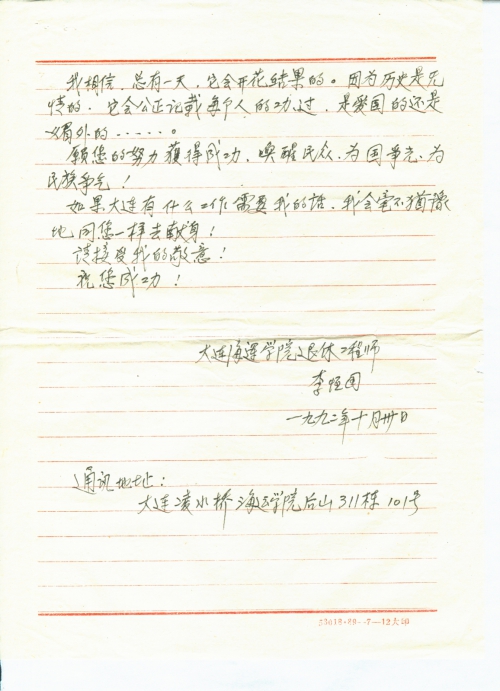 我相信，总有一天，它会开花结果的。因为历史是无
情的，它会公正记载每个人的功过，是爱国的还是
媚外的……。
愿您的努力獲得成功，唤醒民众，为国争光，为
民族争气！
如果大连有什么工作需要我的话，我会毫不犹豫
地同您一样去献身！
请接受我的敬意！
祝您成功！
大连海运学院退休工程师
李恒国
一九九二年十月卅日
通讯地址：
大连凌水桥海运学院后山311栋101号
53018·89··7—12大印